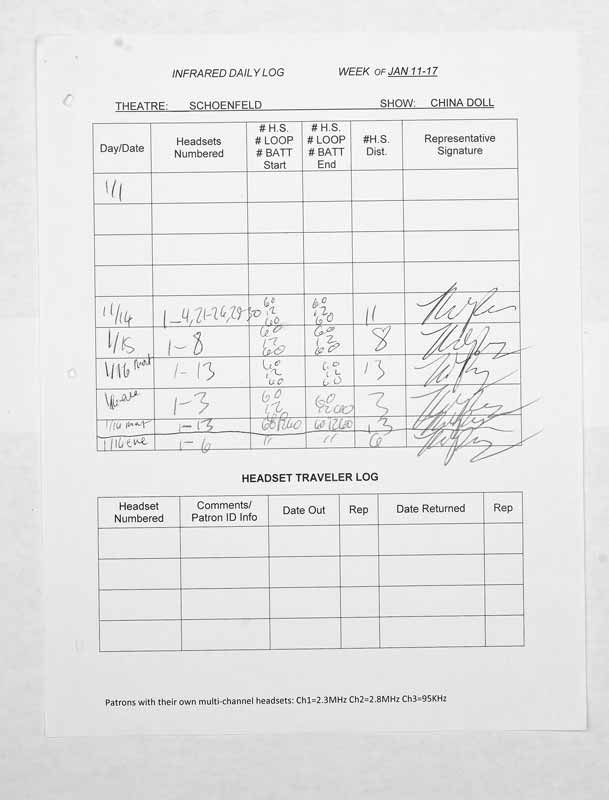 INFRARED DAILY LOG WEEK OF JAN 11-17
THEATRE: SCHOENFELD SHOW: CHINA DOLL
Day/Date Headsets Numbered # H.S. # LOOP # BATT Start # H.S. # LOOP # BATT End #H.S. Dist. Representative Signature
1/1
11/14 1-4,21-26,29-30 60 12 60 60 12 60 11
1/15 1-8 60 12 60 60 12 60 8
1/16 mat 1-13 60 12 60 60 12 60 13
eve 1-3 60 12 60 12 60 3
1/16 mat 1-13 60 12 60 60 12 60 13
1/16 eve 1-6 " " 6
HEADSET TRAVELER LOG
Headset Numbered Comments/ Patron ID Info Date Out Rep Date Returned Rep
Patrons with their own multi-channel headsets: Ch1=2.3MHz Ch2=2.8MHz Ch3=95KHz